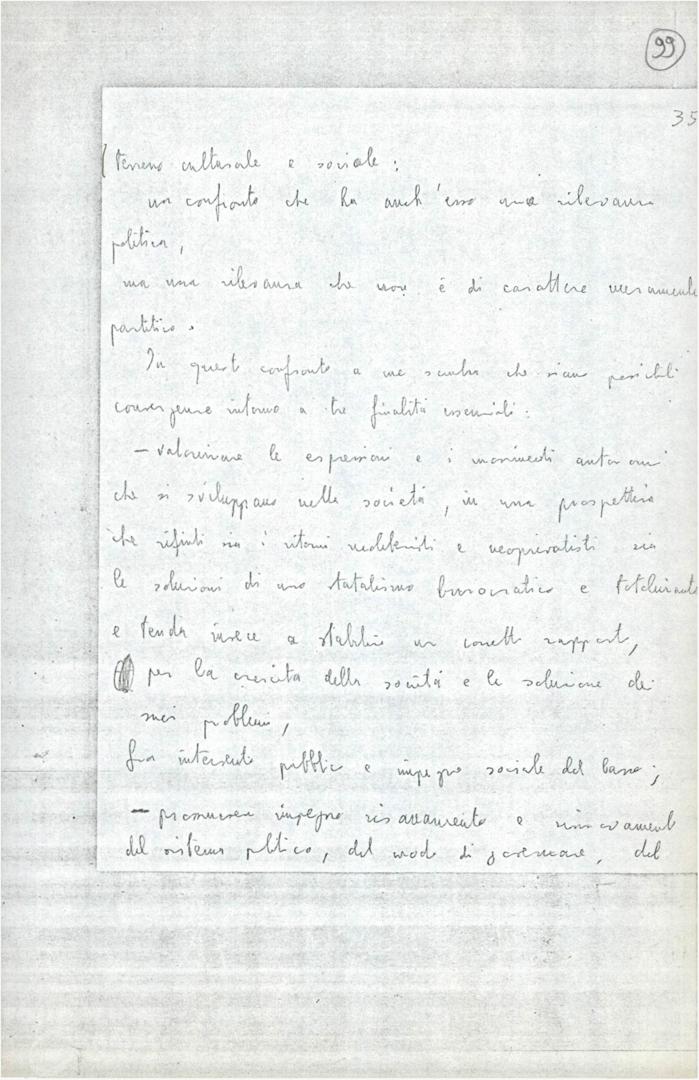 99
35
terreno culturale e sociale:
un confronto che ha anch'esso una rilevanza
politica,
ma una rilevanza che non è di carattere meramente
partitico.
In questo confronto a me sembra che siano possibili
convergenze intorno a tre finalità essenziali:
— valorizzare le espressioni e i movimenti autonomi
che si sviluppano nella società, in una prospettiva
che rifiuti sia i ritorni neoliberisti e neoprivatisti sia
le soluzioni di uno statalismo burocratico e totalizzante
e tenda invece a stabilire un corretto rapporto,
per la crescita della società e le soluzione dei
suoi problemi,
fra intervento pubblico e impegno sociale dal basso;
— promuovere impegno risanamento e rinnovamento
del sistema politico, del modo di governare, del